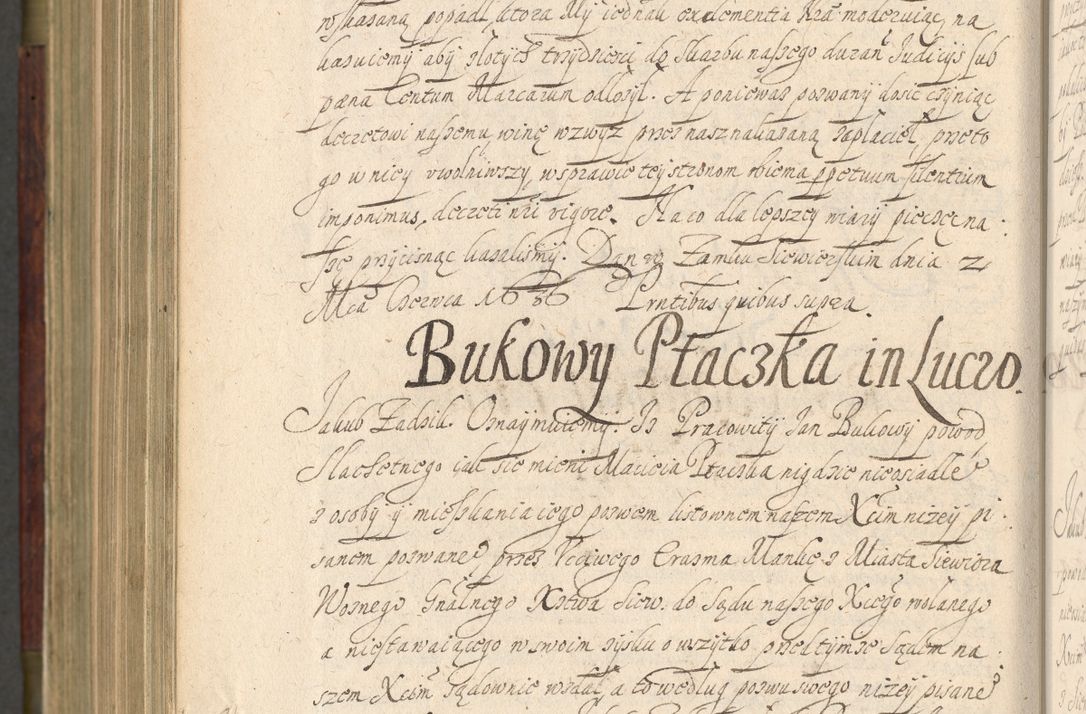 wskasaną popadł, ktora My iednak ex clementia Nra moderuiąc, na
kasuiemy aby złotych trzydzieści do Skarbu naszego duran Iudicijs sub
pæna Centum Marcarum odłożył. A poniewasz poswany dosic czyniąc
decretowi naszemu winę wzwyz przes nasz nakasaną zapłacieł, przeto
go w niey vwolniwszy, w sprawie tey stronom obiema ppetuum silentium
imponimus, decreti nri vigore. Na co dla lepszey wiary pieczęc na
szę przycisnąc kasalismy. Dan w Zamku Siewierskim dnia 2
Mca Czerwca 1636 Prntibus quibus supra.
Bukowy Ptaczka in Lucro.
Jakub Zadzik. Osnaymuiemy. Is Pracowity Ian Bukowy powod
Slachetnego iak sie mieni Macieia Ptaszka nigdzie nieosiadłe
z osoby y mieszkania iego poswem listownem naszem Xcim nizey pi
sanem poswane przes Vcciwego Erasma Mankę z Miasta Siewiora
Wosnego Gnalnego Xstwa Siew. do Sądu naszego Xcego wołanego
a niestawaiącego w swoim zysku o wszytko przed tymze Sądem na
szem Xcim Sądownie wsdał, a to według poswu swego nizey pisane